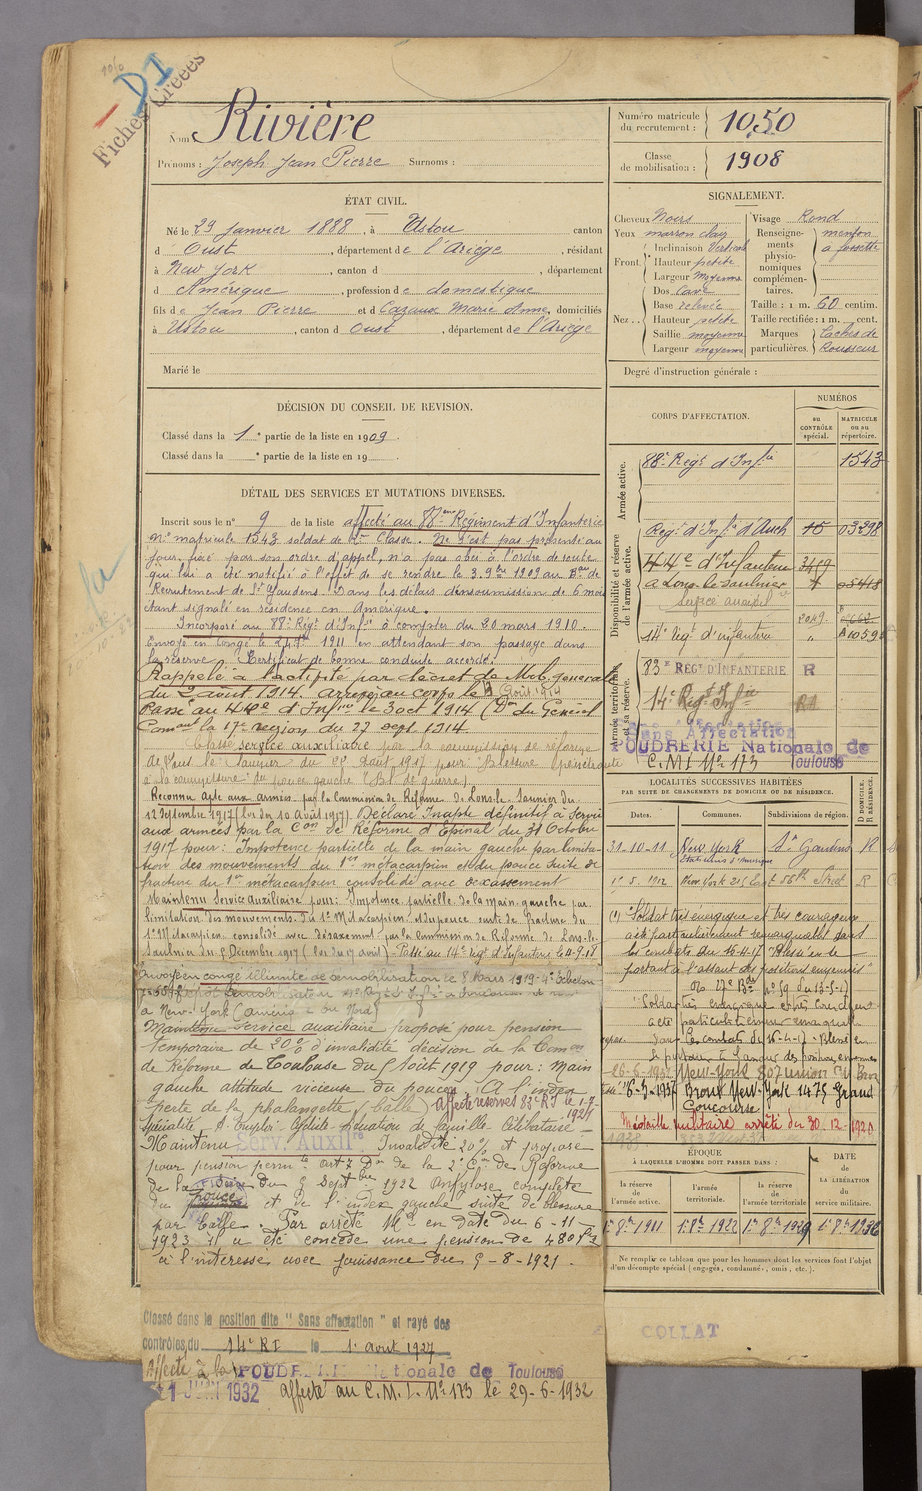 1050
DI
Fiches Créées
Nom : Rivière
Prénoms : Joseph Jean Pierre Surnoms :
Numéro matricule du recrutement : 1050
Classe de mobilisation : 1908
ÉTAT CIVIL.
Né le 29 Janvier 1888, à Ustou canton
d Oust, département de l'Ariège, résidant
à New York, canton d , département
d Amérique, profession de domestique
fils de Jean Pierre et d Cazaux Marie Anne, domiciliés
à Ustou, canton d Oust, département de l'Ariège
Marié le
SIGNALEMENT.
Cheveux Noirs Visage Rond
Yeux marron clair
Front. Inclinaison Verticale
Hauteur petite
Largeur Moyenne
Nez. Dos Cave
Base relevée
Hauteur petite
Saillie moyenne
Largeur moyenne
Renseignements physionomiques complémentaires. menton à fossette
Taille : 1 m. 60 centim.
Taille rectifiée : 1 m. cent.
Marques particulières. taches de Rousseur
Degré d'instruction générale :
DÉCISION DU CONSEIL DE REVISION.
Classé dans la 1e partie de la liste en 1909.
Classé dans la e partie de la liste en 19
DÉTAIL DES SERVICES ET MUTATIONS DIVERSES.
Inscrit sous le n° 9 de la liste affecté au 88ème Régiment d'Infanterie
N° matricule 1543 soldat de 2me Classe. Ne s'est pas présenté au
jour fixé par son ordre d'appel, n'a pas obéi à l'ordre de route
qui lui a été notifié à l'effet de se rendre le 3 9bre 1909 au Bau de
Recrutement de St Gaudens. Dans les délais d'insoumission de 6 mois
étant signalé en résidence en Amérique.
Incorporé au 88e Régt d'Infie à compter du 20 mars 1910.
Envoyé en congé le 24 7bre 1911 en attendant son passage dans
la réserve. Certificat de bonne conduite accordé.
Rappelé à l'activité par décret de Mob. générale
du 2 août 1914. arrivé au corps le 19 Août 1914
Passé au 44e d'Infrie le 3 oct 1914 (Don du Général
Commt la 17e région du 27 sept 1914.
Classé service auxiliaire par la commission de réforme
de Lons le Saunier du août 1917 pour: Blessure pénétrante
à la commissure du pouce gauche (Bl. de guerre)
Reconnu Apte aux armées par la Commission de Réforme de Lons le Saunier du
12 Septembre 1917 (loi du 10 Août 1917) Déclaré Inapte définitif à servir
aux armées par la Con de Réforme d'Epinal du 31 Octobre
1917 pour: Impotence partielle de la main gauche par limita-
tion des mouvements du 1er métacarpien et du pouce suite de
fracture du 1er métacarpien consolidé avec dexassement
Maintenu Service Auxiliaire pour: Impotence partielle de la main gauche par
limitation des mouvements du 1er Métacarpien et du pouce suite de fracture du
1er Métacarpien consolidé avec désaxement par la Commission de Réforme de Lons-le-
Saulnier du 5 Décembre 1917 (loi du 17 avril). Passé au 14e régt d'Infanterie le 4-7-18
Envoyé en congé illimité de démobilisation le 8 Mars 1919 4e Echelon
à New-York (Amérique du Nord)
Maintenu service auxiliaire proposé pour pension
temporaire de 20% d'invalidité décision de la Comon
de Réforme de Toulouse du 5 Août 1919 pour: Main
gauche attitude vicieuse du pouce, (A l'index
perte de la phalangette (balle) Affecté réserves 83e RI le 1-7-1921
situation de famille Célibataire
Maintenu Serv. Auxil. Invalidité 20% et proposé
pour pension permte art 7 Don de la 2e Con de Réforme
de la Seine du 9 Septbre 1922 Ankylose complète
du pouce et de l'index gauche suite de blessure
par balle. Par arrêté Mel en date du 6-11-
1923 il a été concédé une pension de 480 frs
à l'intéressé avec jouissance du 5-8-1921.
Classé dans la position dite "Sans affectation" et rayé des
contrôles du 14e RI le 1er avril 1927
Affecté à la POUDRERIE Nationale de Toulouse
1 JUIN 1932 affecté au C.M.I. N° 173 le 29-6-1932
CORPS D'AFFECTATION.
NUMÉROS
au CONTRÔLE spécial.
MATRICULE ou au répertoire.
Armée active.
88e Régt d'Infie 1543
Disponibilité et réserve de l'armée active.
Régt d'Infie d'Auch 15 03298
44e d'Infanterie 3419
à Lons-le-Saulnier 05418
Service auxil
14e régt d'infanterie 2049 A10590
Armée territoriale et sa réserve.
83e REGt D'INFANTERIE R
14e Régt Infie
Sans Affectation
POUDRERIE Nationale de Toulouse
C.M.I. N° 173
LOCALITÉS SUCCESSIVES HABITÉES
PAR SUITE DE CHANGEMENTS DE DOMICILE OU DE RÉSIDENCE.
D DOMICILE. R RÉSIDENCE.
Dates. Communes. Subdivisions de région.
31-10-11 New York St Gaudens R
Etats unis d'Amérique
1er 5. 1912 New York 215 East 58th Street R
(1) "Soldat très énergique et très courageux
a été particulièrement remarquable dans
les combats du 16-4-17 Blessé en se
portant à l'assaut des positions ennemies"
n° 59 du 13-5-17
"Soldat très énergique et très courageux
a été particulièrement remarquable
dans les combats du 16-4-17. Blessé en
se portant à l'assaut des positions ennemies
26-6-1932 New-York 807 Union Av Bronx
6-9-1937 Bronx New-York 1475 Grand
Concourse
Médaille militaire arrêté du 30-12-1920
ÉPOQUE
À LAQUELLE L'HOMME DOIT PASSER DANS :
la réserve de l'armée active.
l'armée territoriale.
la réserve de l'armée territoriale
DATE de LA LIBÉRATION du service militaire.
1er 8bre 1911 1er 8bre 1922 1er 8bre 1929 1er 8bre 1936
Ne remplir ce tableau que pour les hommes dont les services font l'objet
d'un décompte spécial (engagés, condamnés, omis, etc.).
COLLAT